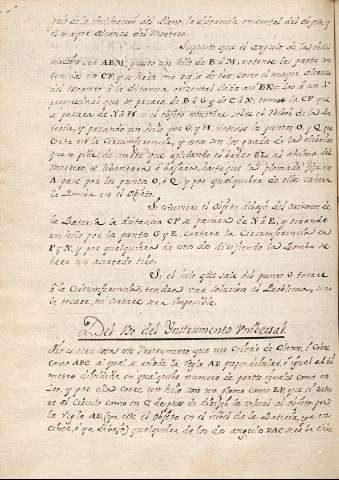 de la inclinación del Plano, la distancia orizontal del objeto, y
el mayor alcance del Mortero.
Supuesto que el Angulo de la Incli
nación sea ABM, puesto un hilo de B à M, notense las partes
en CF, y se hara una regla de tres como el mayor alcance
del Mortero à la distancia orizontal dada así BK= 100 à un 4.º
proporcional que se pasara de B à G y de C à N; tomese la CF que
se pasara de N à H si el objeto estuviere sobre el Nivel de la Ba
teria, y pasando un hilo por G, y H, notese los puntos O, y Q que
Corta en la Circunferencia, y estos son los grados de la elevacion
que se pide; de suerte que aplicando el brazo BL, al anima del
mortero se lebantara o bajara, hasta que la plomada fija en
A pase por los puntos O, ó Q y por qualquiera de ellos caera
la Bomba en el objeto.
Si estuviere el Objeto debajo del Orizonte de
la Bateria la distancia CF se pasara de N à E, y tirando
un hilo por los puntos G y E, cortara la Circunferencia en
P y N, y por qualquiera de estos dos dirijiendo la Bomba se
hara un acertado tiro.
Si el hilo que sale del punto G tocare
à la Circunferencia, tendra una solucion el Problema, si no
le tocare, ni cortare sera imposible.
Del Uso del Instrumento Universal
No es otra cosa este Instrumento que un Circulo de Laton, ó Cobre
como ABC al qual se añade la regla AD perpendicular, è igual al dia
metro dividida en qualquier numero de partes iguales como en
200, y por ella corre un hilo con un plomo como EP, que si detu
se al Circulo como en C despues de dirijida la visual al objeto por
la regla AD, (ya este el objeto en el nivel de la Bateria, ya en
cima, ó ya debajo) qualquiera de los dos angulos DAC sera la elev